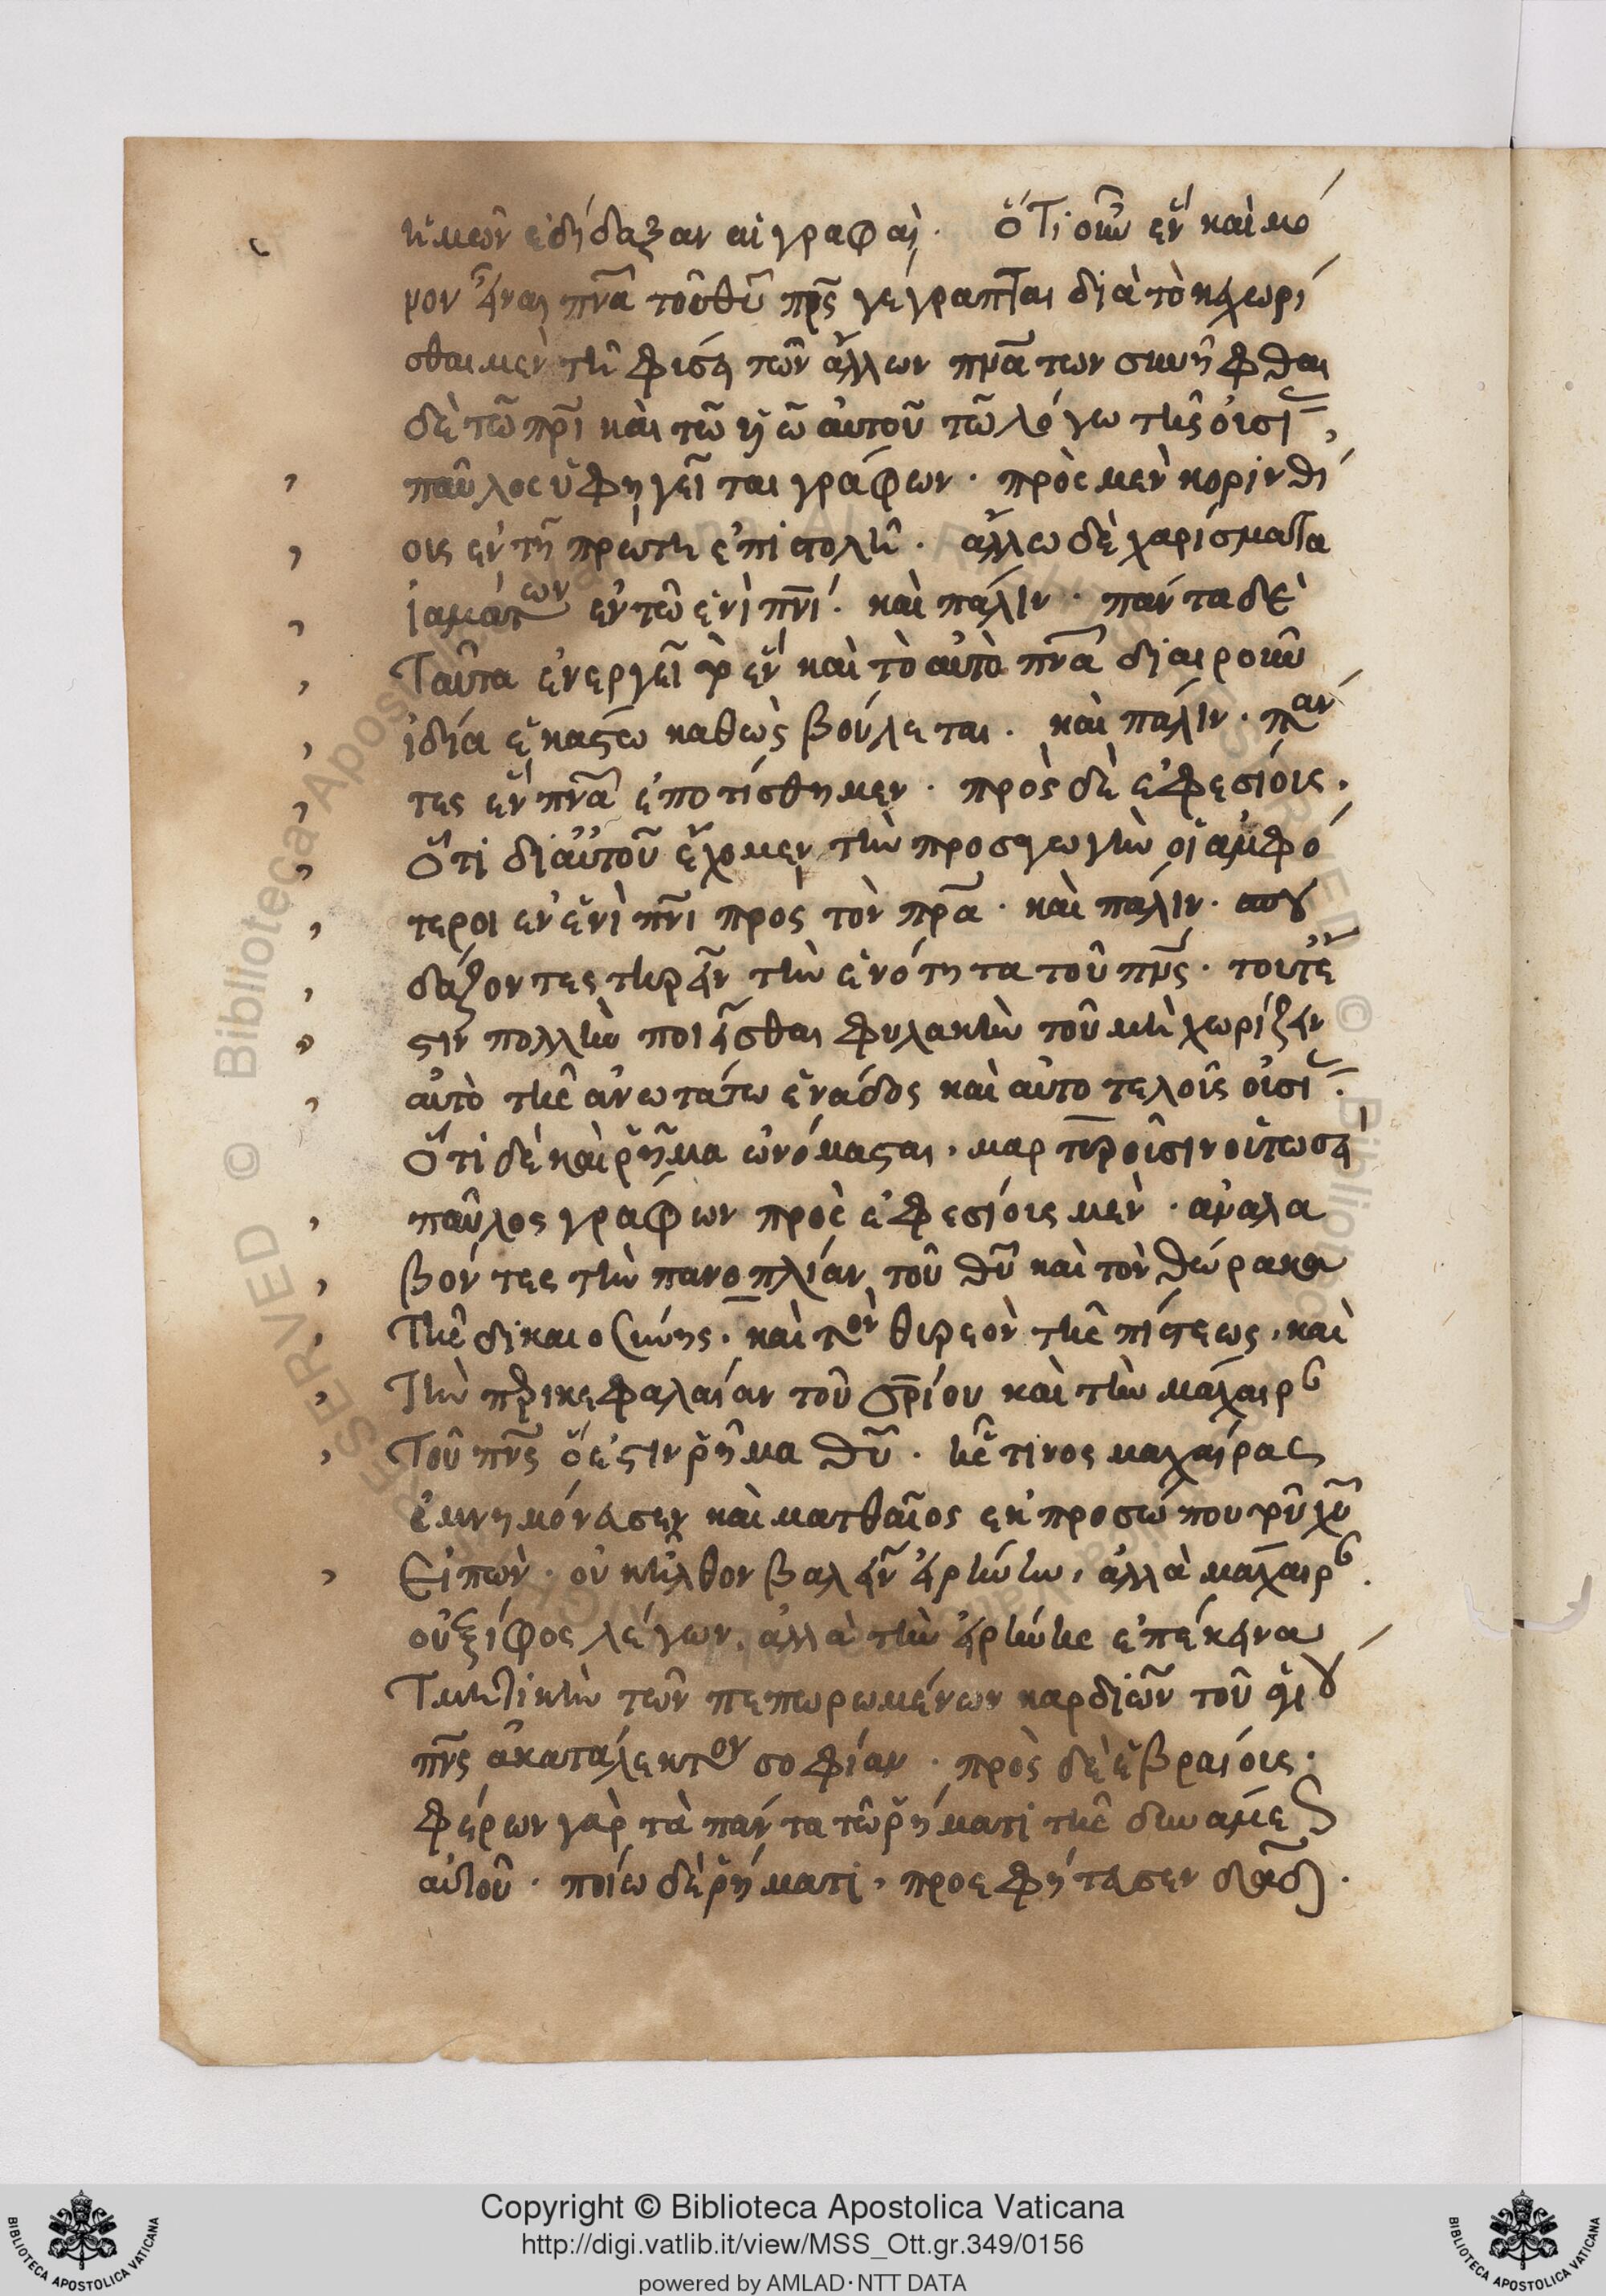 ἡμῶν ἐδίδαξαν αἱ γραφαί. ὅτι οὖν ἓν καὶ μό
νον εἶναι πνα τοῦ θυ πρς γέγραπται διὰ τὸ κεχωρί
σθαι μὲν τῇ φύσει τῶν ἄλλων πνάτων συνῆφθαι
δὲ τῶ πρι καὶ τῶ υἱῶ αὐτοῦ τῶ λόγω τῆς οὐσί
παῦλος ὑφηγεῖται γράφων. πρὸς μὲν κορινθί
οις ἐν τῇ πρώτη ἐπιστολῇ. ἄλλω δὲ χαρίσματα
ἰαμάτων ἐν τῶ ἑνὶ πνι. καὶ πάλιν. πάντα δὲ
ταῦτα ἐνεργεῖ τὸ ἓν καὶ τὸ αὐτὸ πνα διαιροῦν
ἰδία ἑκάστω καθὼς βούλεται. καὶ πάλιν. πάν
τες ἓν πνα ἐποτίσθημεν. πρὸς δὲ ἐφεσίοις.
ὅτι δι αὐτοῦ ἔχομεν τὴν προσαγωγὴν οἱ ἀμφό
τεροι ἐν ἑνὶ πνι πρὸς τὸν πρα. καὶ πάλιν. σπου
δάζοντες τηρεῖν τὴν ἑνότητα τοῦ πνς. τουτέ
στιν πολλὴν ποιεῖσθαι φυλακὴν τοῦ μὴ χωρίζειν
αὐτὸ τῆς ἀνωτάτω ἑνάδος καὶ αὐτοτελοῦς οὐσί.
ὅτι δὲ καὶ ῥῆμα ὠνόμασται, μαρτυροῦσιν οὕτωσί
παῦλος γράφων πρὸς ἐφεσίοις μὲν. ἀναλα
βόντες τὴν πανοπλίαν τοῦ θυ καὶ τὸν θώρακα
τῆς δικαιοσύνης. καὶ τὸν θυρεὸν τῆς πίστεως, καὶ
τὴν περικεφαλαίαν τοῦ σρίου καὶ τὴν μάχαιρ
τοῦ πνς ὅ ἐστιν ῥῆμα θυ. ἧς τινος μαχαίρας
ἐμνημόνευσεν καὶ ματθαῖος ἐκ προσώπου τοῦ χυ
εἰπών. οὐκ ἦλθον βαλεῖν εἰρήνην, ἀλλὰ μάχαιρ.
οὐ ξίφος λέγων. ἀλλὰ τὴν εἰρήνης ἐπέκεινα
τμητικὴν τῶν πεπωρωμένων καρδιῶν τοῦ ἁγίου
πνς ἀκατάλεκτον σοφίαν. πρὸς δὲ ἑβραίοις.
φέρων γὰρ τὰ πάντα τῶ ῥήματι τῆς δυνάμεως
αὐτοῦ. ποίω δὲ ῥήματι, προεφήτευσεν δαδ.
Copyright © Biblioteca Apostolica Vaticana
http://digi.vatlib.it/view/MSS_Ott.gr.349/0156
powered by AMLAD·NTT DATA